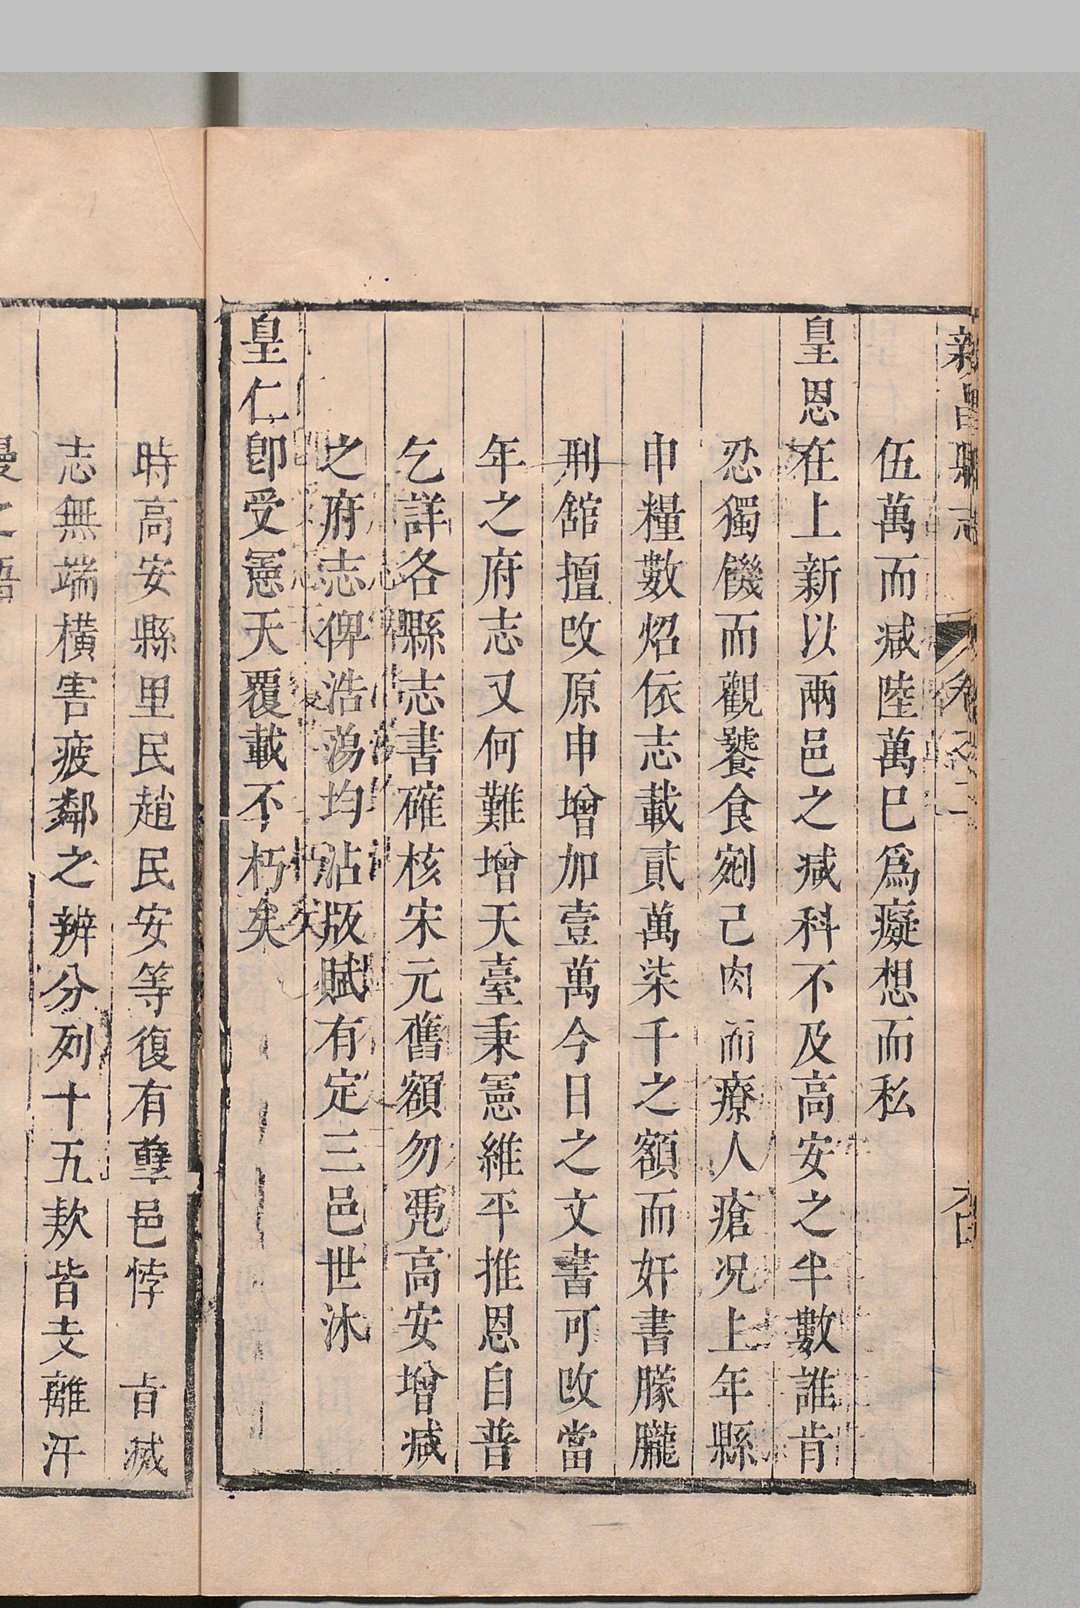 新昌縣志
卷之二
伍萬而减陸萬巳爲癡想而私
皇恩在上新以兩邑之减科不及高安之半數誰肯
忍獨饑而觀饕食剜己肉而療人瘡况上年縣
申糧數炤依志載貳萬柒千之額而奸書朦朧
刑舘擅改原申增加壹萬今日之文書可改當
年之府志又何難增天臺秉憲維平推恩自普
乞詳各縣志書確核宋元舊額勿凴高安增减
之府志俾浩蕩均沾版賦有定三邑世沐
皇仁卽受憲天覆載不朽矣
時高安縣里民趙民安等復有孽邑悖旨滅
志無端橫害疲鄰之辨分列十五欵皆支離汗
漫之語